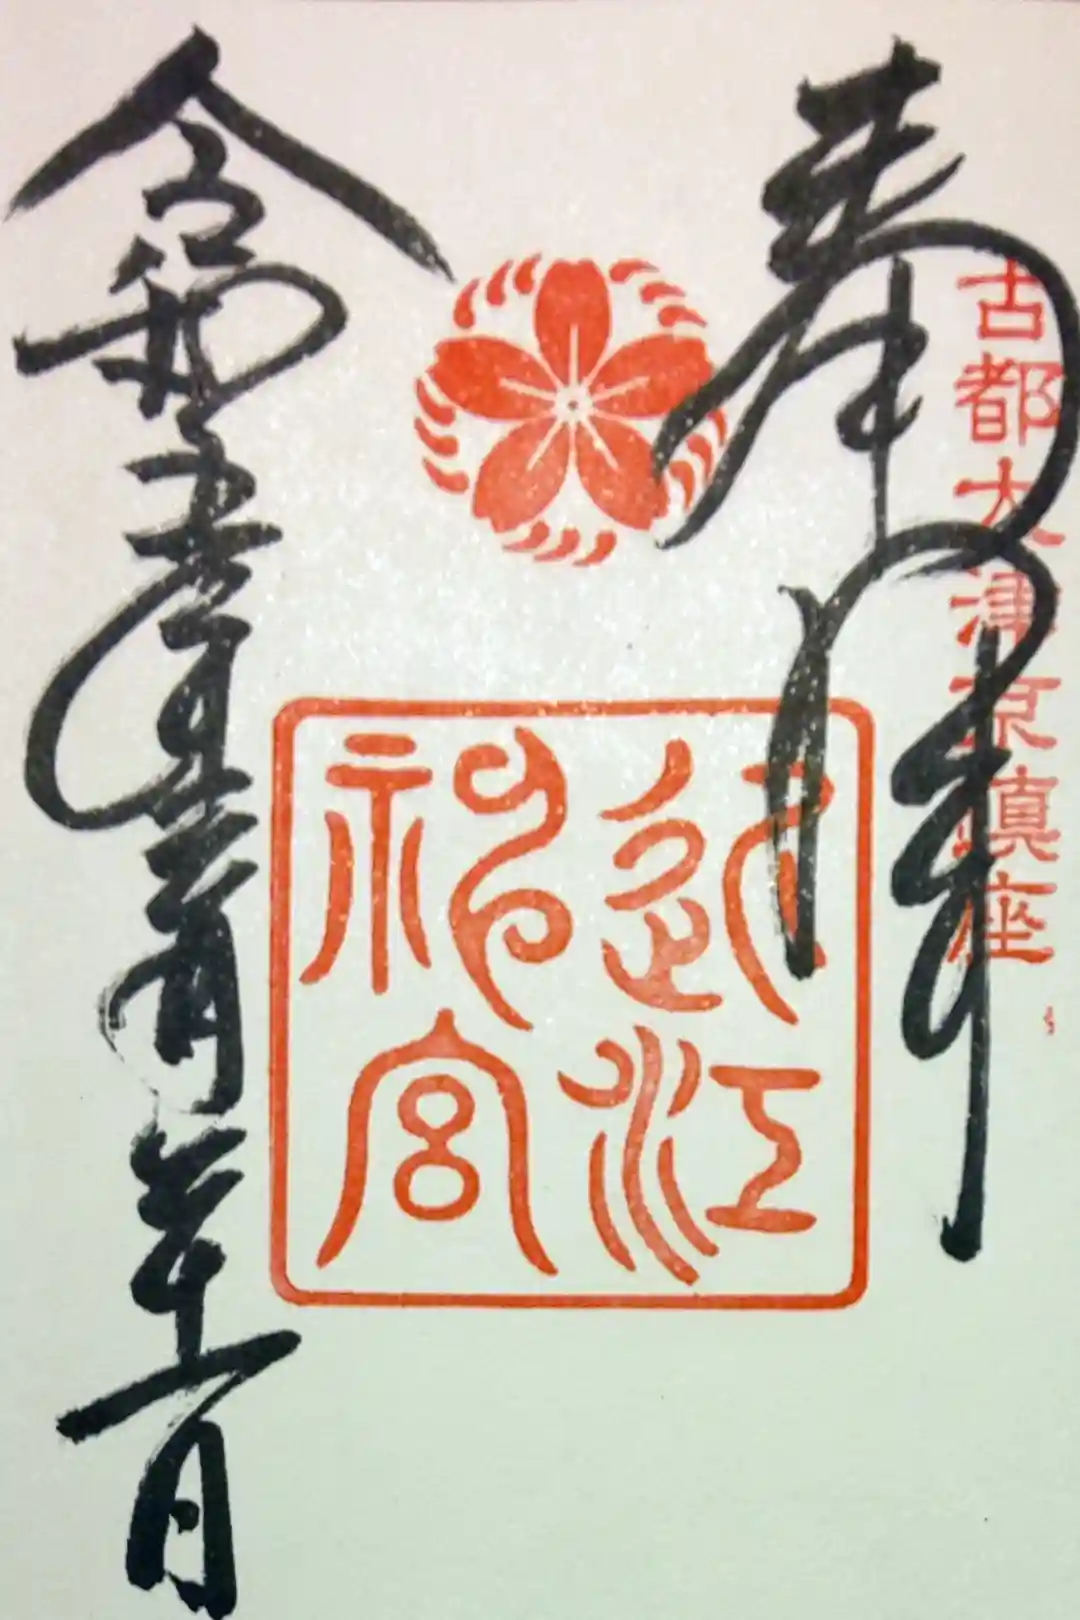 古都大津京鎮座
奉拝
近江
神宮
令和